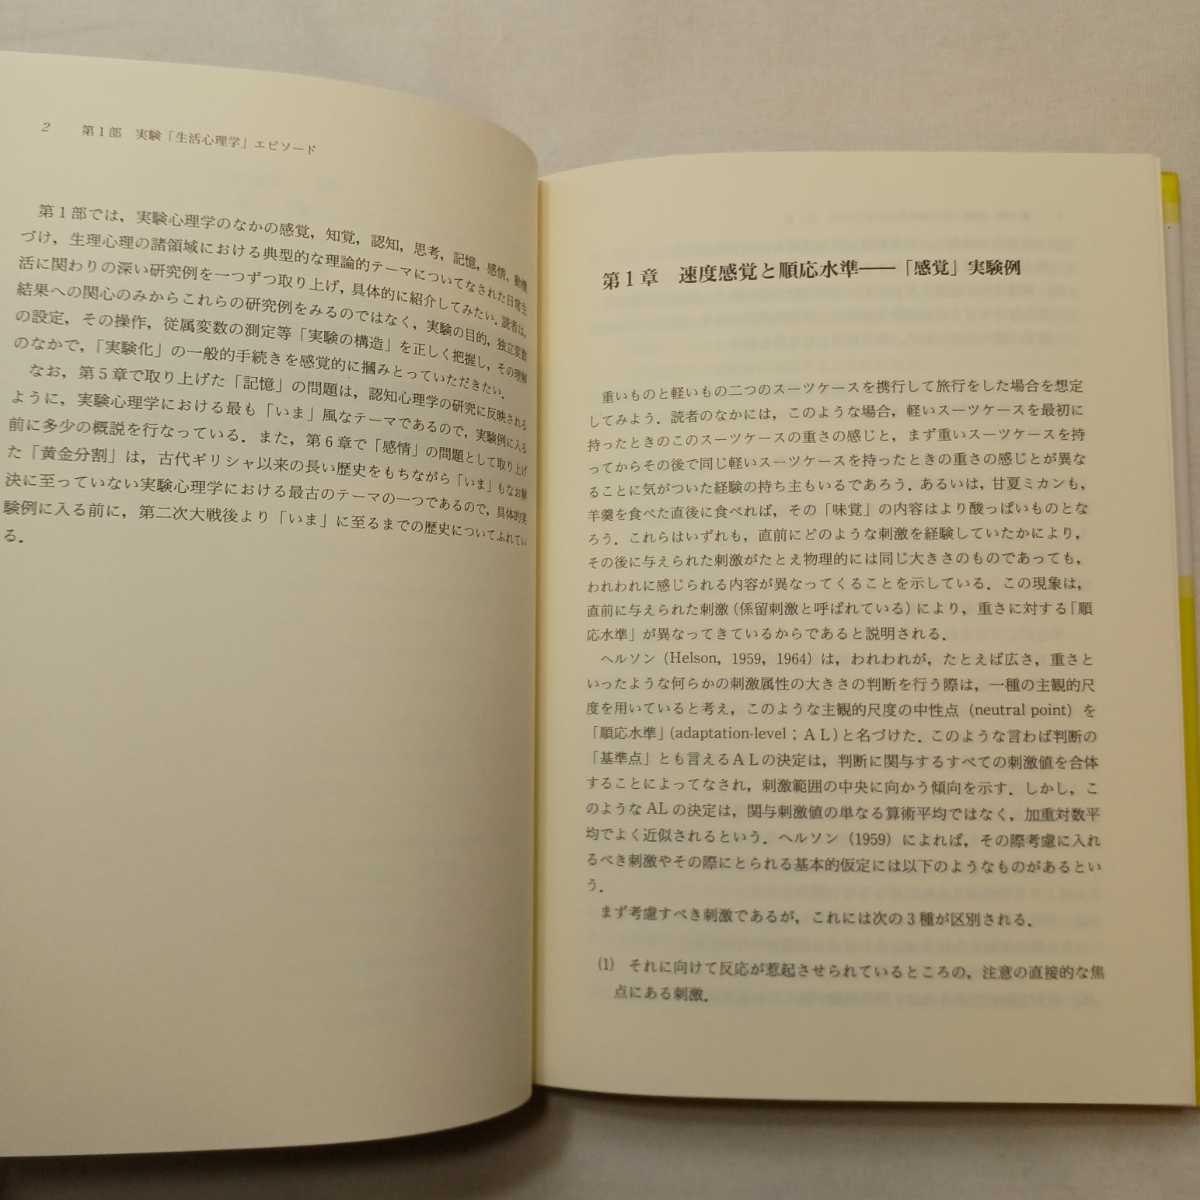 2　第1部　実験「生活心理学」エピソード
第1部では，実験心理学のなかの感覚，知覚，認知，思考，記憶，感情，動機
づけ，生理心理の諸領域における典型的な理論的テーマについてなされた日常生
活に関わりの深い研究例を一つずつ取り上げ，具体的に紹介してみたい．読者は，
結果への関心のみからこれらの研究例をみるのではなく，実験の目的，独立変数
の設定，その操作，従属変数の測定等「実験の構造」を正しく把握し，その理解
のなかで，「実験化」の一般的手続きを感覚的に摑みとっていただきたい．
なお，第5章で取り上げた「記憶」の問題は，認知心理学の研究に反映される
ように，実験心理学における最も「いま」風なテーマであるので，実験例に入る
前に多少の概説を行なっている．また，第6章で「感情」の問題として取り上げ
た「黄金分割」は，古代ギリシャ以来の長い歴史をもちながら「いま」もなお解
決に至っていない実験心理学における最古のテーマの一つであるので，具体的実
験例に入る前に，第二次大戦後より「いま」に至るまでの歴史についてふれてい
る．
第1章　速度感覚と順応水準――「感覚」実験例
重いものと軽いもの二つのスーツケースを携行して旅行をした場合を想定
してみよう．読者のなかには，このような場合，軽いスーツケースを最初に
持ったときのこのスーツケースの重さの感じと，まず重いスーツケースを持
ってからその後で同じ軽いスーツケースを持ったときの重さの感じとが異な
ることに気がついた経験の持ち主もいるであろう．あるいは，甘夏ミカンも，
羊羹を食べた直後に食べれば，その「味覚」の内容はより酸っぱいものとな
ろう．これらはいずれも，直前にどのような刺激を経験していたかにより，
その後に与えられた刺激がたとえ物理的には同じ大きさのものであっても，
われわれに感じられる内容が異なってくることを示している．この現象は，
直前に与えられた刺激（係留刺激と呼ばれている）により，重さに対する「順
応水準」が異なってきているからであると説明される．
ヘルソン（Helson，1959，1964）は，われわれが，たとえば広さ，重さと
いったような何らかの刺激属性の大きさの判断を行う際は，一種の主観的尺
度を用いていると考え，このような主観的尺度の中性点（neutral point）を
「順応水準」（adaptation-level；ＡＬ）と名づけた．このような言わば判断の
「基準点」とも言えるＡＬの決定は，判断に関与するすべての刺激値を合体
することによってなされ，刺激範囲の中央に向かう傾向を示す．しかし，こ
のような AL の決定は，関与刺激値の単なる算術平均ではなく，加重対数平
均でよく近似されるという．ヘルソン（1959）によれば，その際考慮に入れ
るべき刺激やその際にとられる基本的仮定には以下のようなものがあるとい
う．
まず考慮すべき刺激であるが，これには次の3種が区別される．
(1)　それに向けて反応が惹起させられているところの，注意の直接的な焦
点にある刺激．